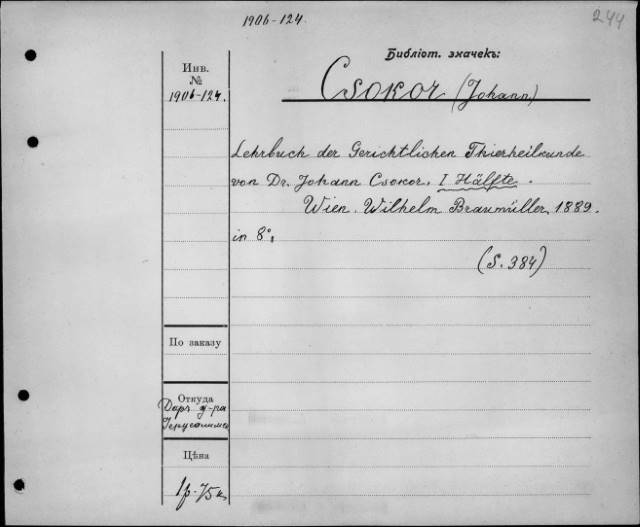 1906-124.
244
Библіот. значекъ:
Csokor (Johann)
Инв.
№
1906-124.
Lehrbuch der Gerichtlichen Thierheilkunde
von Dr. Johann Csokor. I Hälfte.
Wien. Wilhelm Braumüller, 1889.
in 8°.
(S. 384)
По заказу
Откуда
Даръ д-ра
Цѣна
1 р. 75 к.